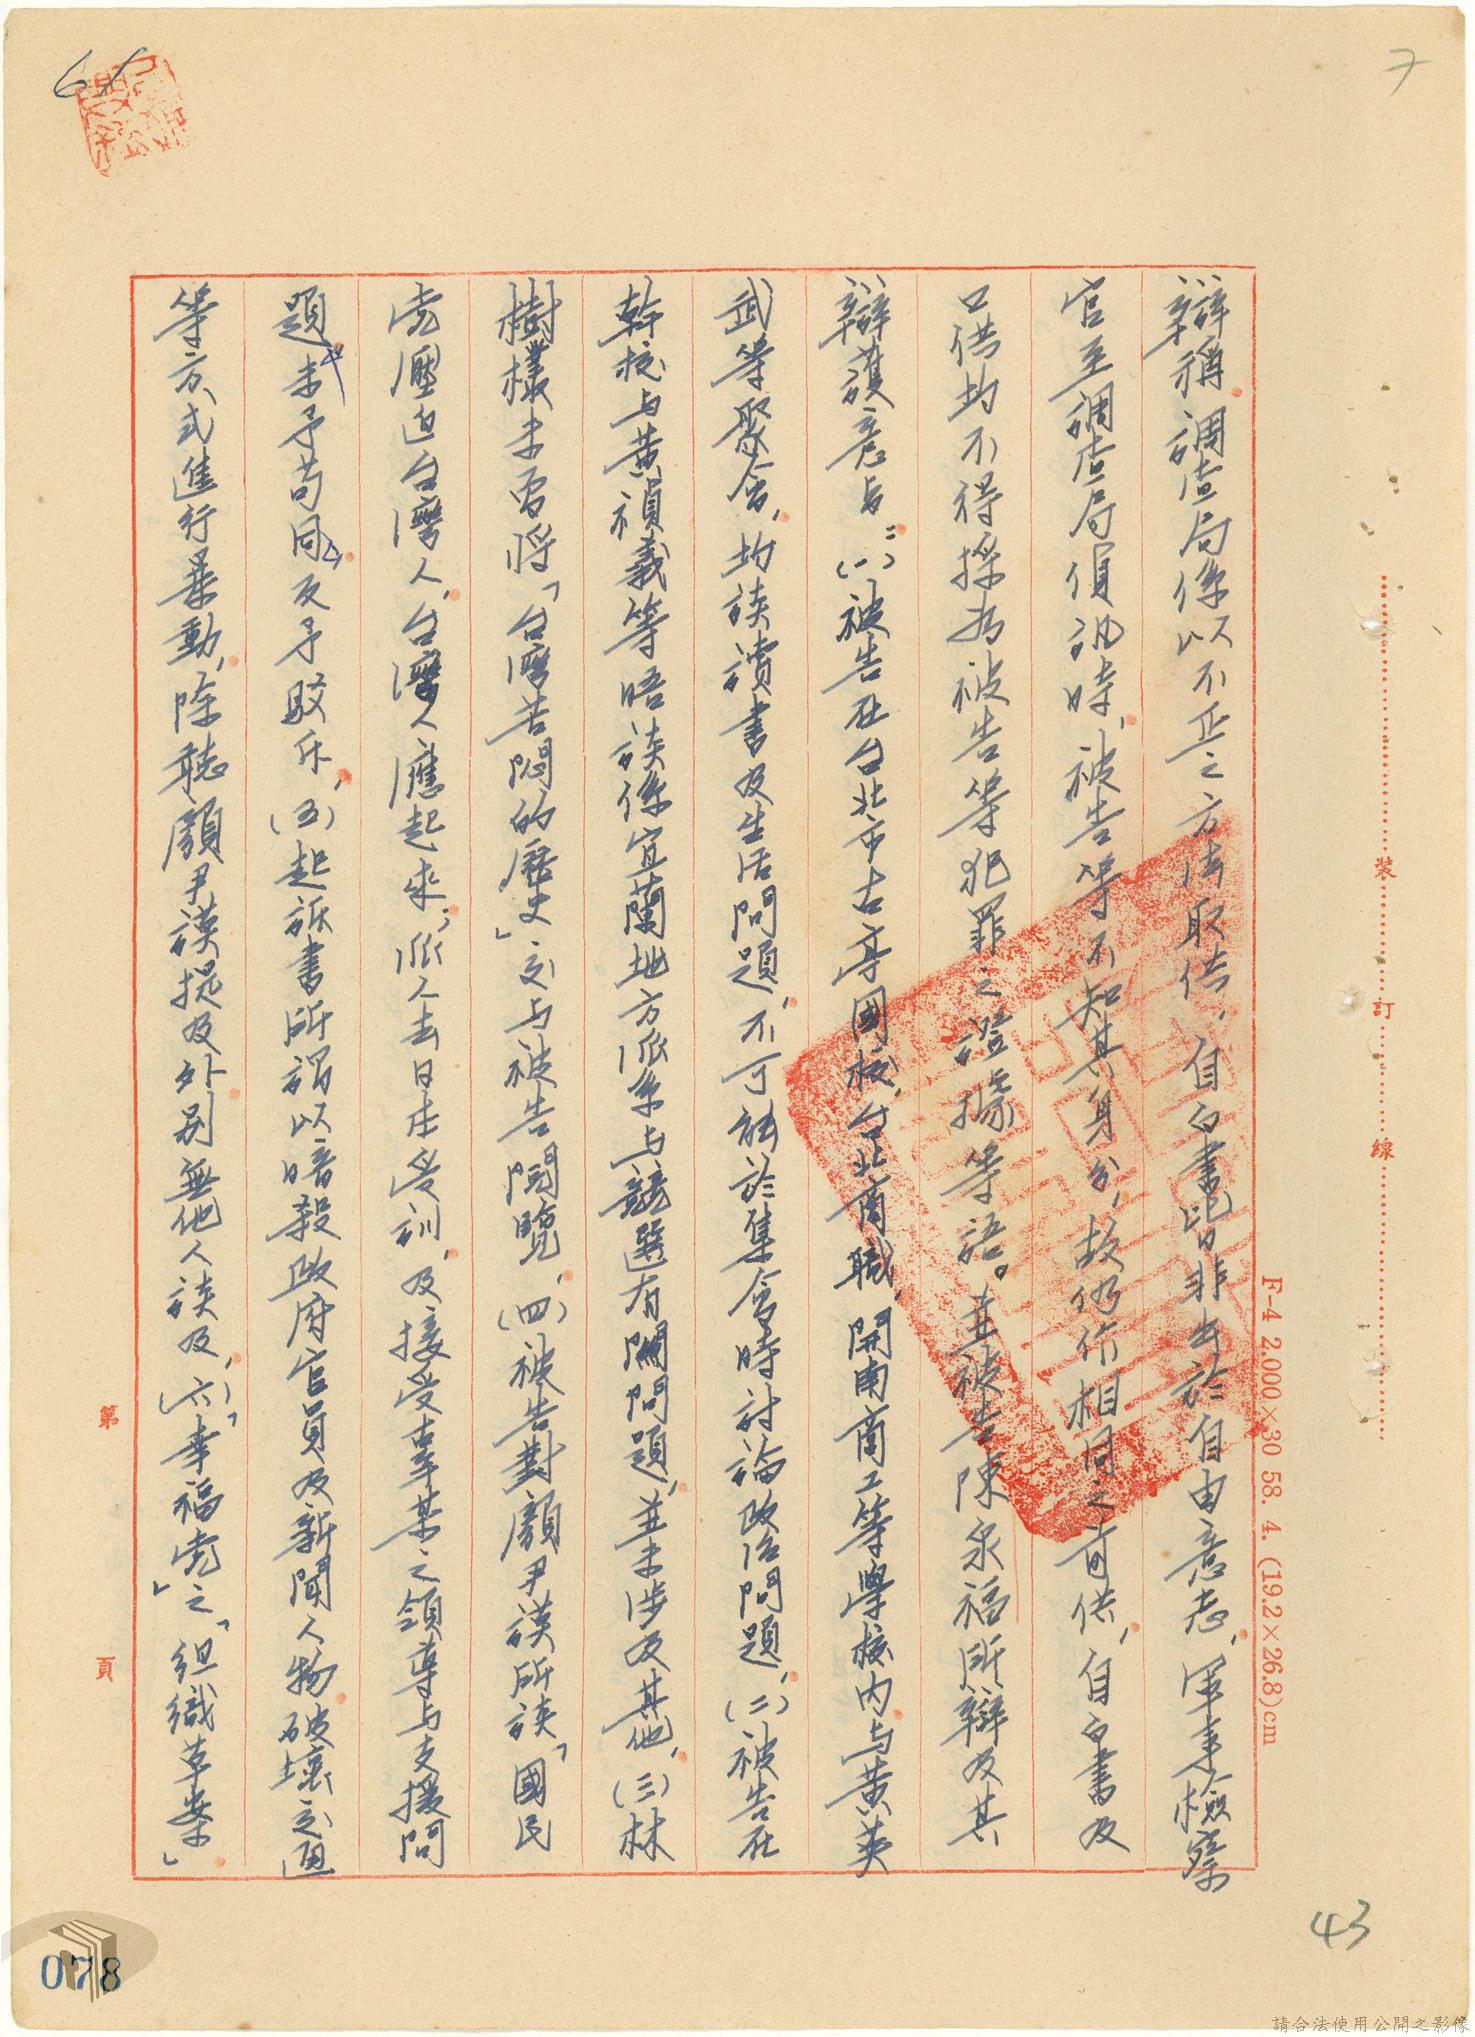 7
61
辯稱調查局係以不正之方法取供，自白書皆非出於自由意志，軍事檢察
官至調查局偵訊時，被告等不知其身分，故仍作相同之前供，自白書及
口供均不得採為被告等犯罪之證據等語。並被告陳泉福所辯及其
辯護意旨：(一)被告在台北市古亭國校，台北商職，開南商工等學校內與黃英
武等聚會，均談讀書及生活問題，不可能於集會時討論政治問題，(二)被告在
幹校与黃禎義等晤談係宜蘭地方派系与競選有關問題，並未涉及其他，(三)林
樹樸未曾將「台灣苦悶的歷史」交与被告閱覽，(四)被告對顏尹謨所談「國民
党壓迫台灣人，台灣人應起來，派人去日本受訓，及接受辜某之領導与支援問
題」未予苟同，反予駁斥，(五)起訴書所謂以暗殺政府官員及新聞人物破壞交通
等方式進行暴動，除聽顏尹謨提及外別無他人談及，(六)「幸福党」之「組織草案」
裝 訂 線
F-4 2,000×30 58. 4. (19.2×26.8)cm
第 頁
43
078
請合法使用公開之影像